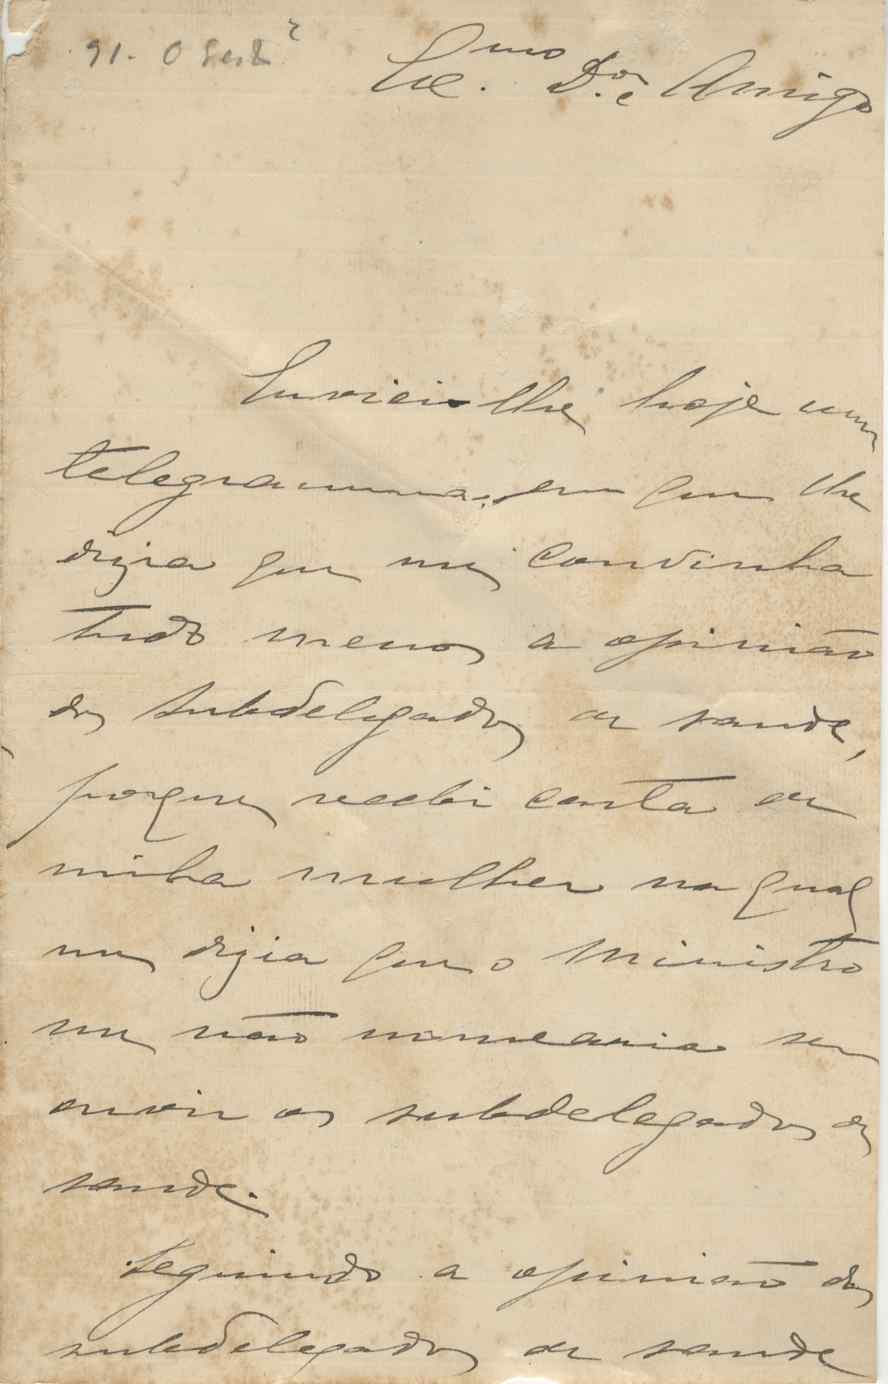 91.
Ex.mo D.or e Amigo
Enviei-lhe hoje um
telegramma, em que lhe
dizia que me convinha
tudo menos a opinião
dos subdelegados de saude,
porque recebi carta de
minha mulher na qual
me dizia que o Ministro
me não nomearia sem
ouvir os subdelegados de
saude.
Seguindo a opinião dos
subdelegados de saude